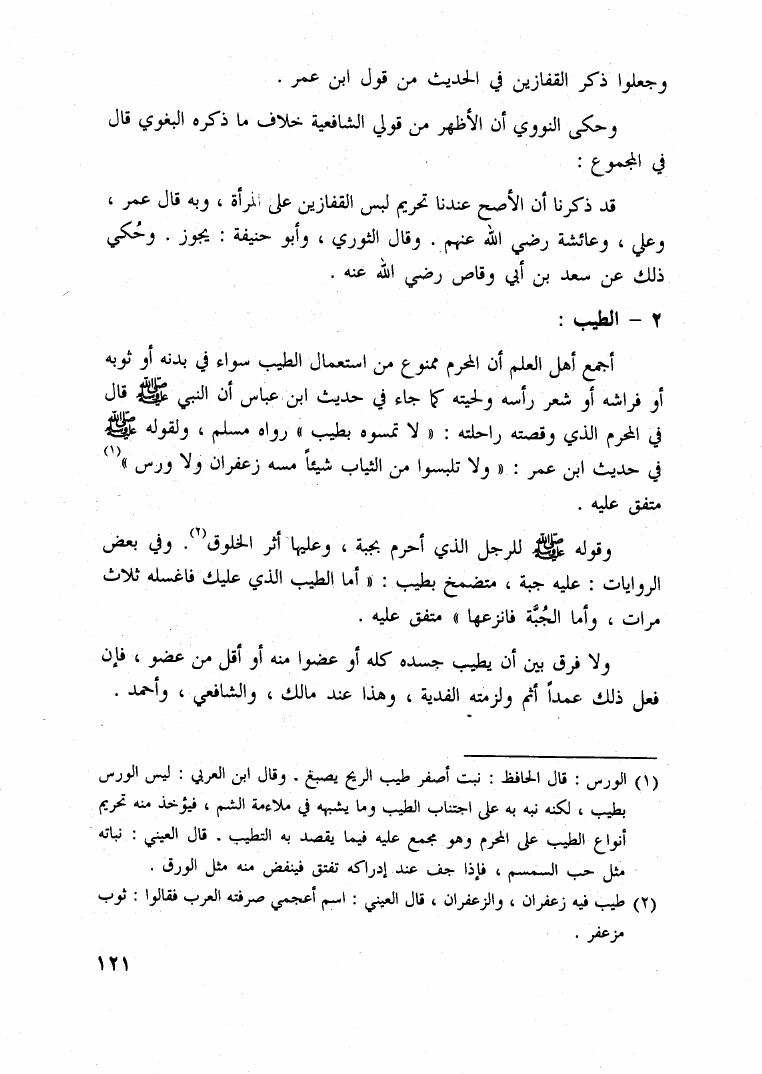 وجعلوا ذكر القفازين في الحديث من قول ابن عمر .
وحكى النووي أن الأظهر من قولي الشافعية خلاف ما ذكره البغوي قال
في المجموع :
قد ذكرنا أن الأصح عندنا تحريم لبس القفازين على المرأة ، وبه قال عمر ،
وعلي ، وعائشة رضي الله عنهم . وقال الثوري ، وأبو حنيفة : يجوز . وحُكي
ذلك عن سعد بن أبي وقاص رضي الله عنه .
٢ – الطيب :
أجمع أهل العلم أن المحرم ممنوع من استعمال الطيب سواء في بدنه أو ثوبه
أو فراشه أو شعر رأسه ولحيته كما جاء في حديث ابن عباس أن النبي ﷺ قال
في المحرم الذي وقصته راحلته : « لا تمسوه بطيب » رواه مسلم ، ولقوله ﷺ
في حديث ابن عمر : « ولا تلبسوا من الثياب شيئاً مسه زعفران ولا ورس »(١)
متفق عليه .
وقوله ﷺ للرجل الذي أحرم بجبة ، وعليها أثر الخلوق(٢). وفي بعض
الروايات : عليه جبة ، متضمخ بطيب : « أما الطيب الذي عليك فاغسله ثلاث
مرات ، وأما الجُبَّة فانزعها » متفق عليه .
ولا فرق بين أن يطيب جسده كله أو عضوا منه أو أقل من عضو ، فإن
فعل ذلك عمداً أثم ولزمته الفدية ، وهذا عند مالك ، والشافعي ، وأحمد .
(١) الورس : قال الحافظ : نبت أصفر طيب الريح يصبغ . وقال ابن العربي : ليس الورس
بطيب ، لكنه نبه به على اجتناب الطيب وما يشبهه في ملاءمة الشم ، فيؤخذ منه تحريم
أنواع الطيب على المحرم وهو مجمع عليه فيما يقصد به التطيب . قال العيني : نباته
مثل حب السمسم ، فإذا جف عند إدراكه تفتق فينفض منه مثل الورق .
(٢) طيب فيه زعفران ، والزعفران ، قال العيني : اسم أعجمي صرفته العرب فقالوا : ثوب
مزعفر .
١٢١